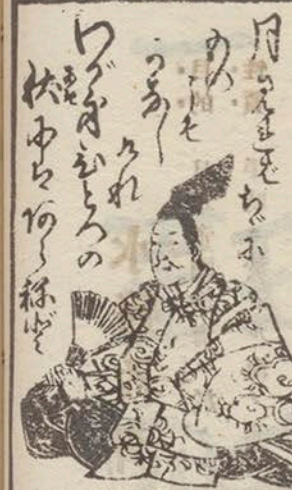 月みればちゞに
ものこそ
かなし
けれ
わが身ひとつの
秋にはあらねど